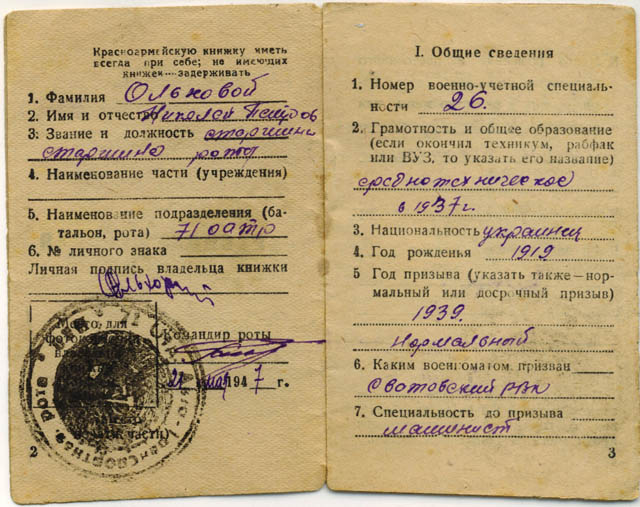 Красноармейскую книжку иметь
всегда при себе; не имеющих
книжек—задерживать
1. Фамилия Ольховой
2. Имя и отчество Николай Петров
3. Звание и должность старшина
старшина роты
4. Наименование части (учреждения)
5. Наименование подразделения (ба-
тальон, рота) 71 оатр
6. № личного знака
Личная подпись владельца книжки
Ольховой
Место для
Командир роты
21 мая 1947 г.
части)
2
I. Общие сведения
1. Номер военно-учетной специаль-
ности 26.
2. Грамотность и общее образование
(если окончил техникум, рабфак
или ВУЗ, то указать его название)
среднетехническое
в 1937 г.
3. Национальность украинец
4. Год рождения 1919
5 Год призыва (указать также—нор-
мальный или досрочный призыв)
1939.
Нормальный
6. Каким военкоматом призван
Сватовский РВК
7. Специальность до призыва
машинист
3